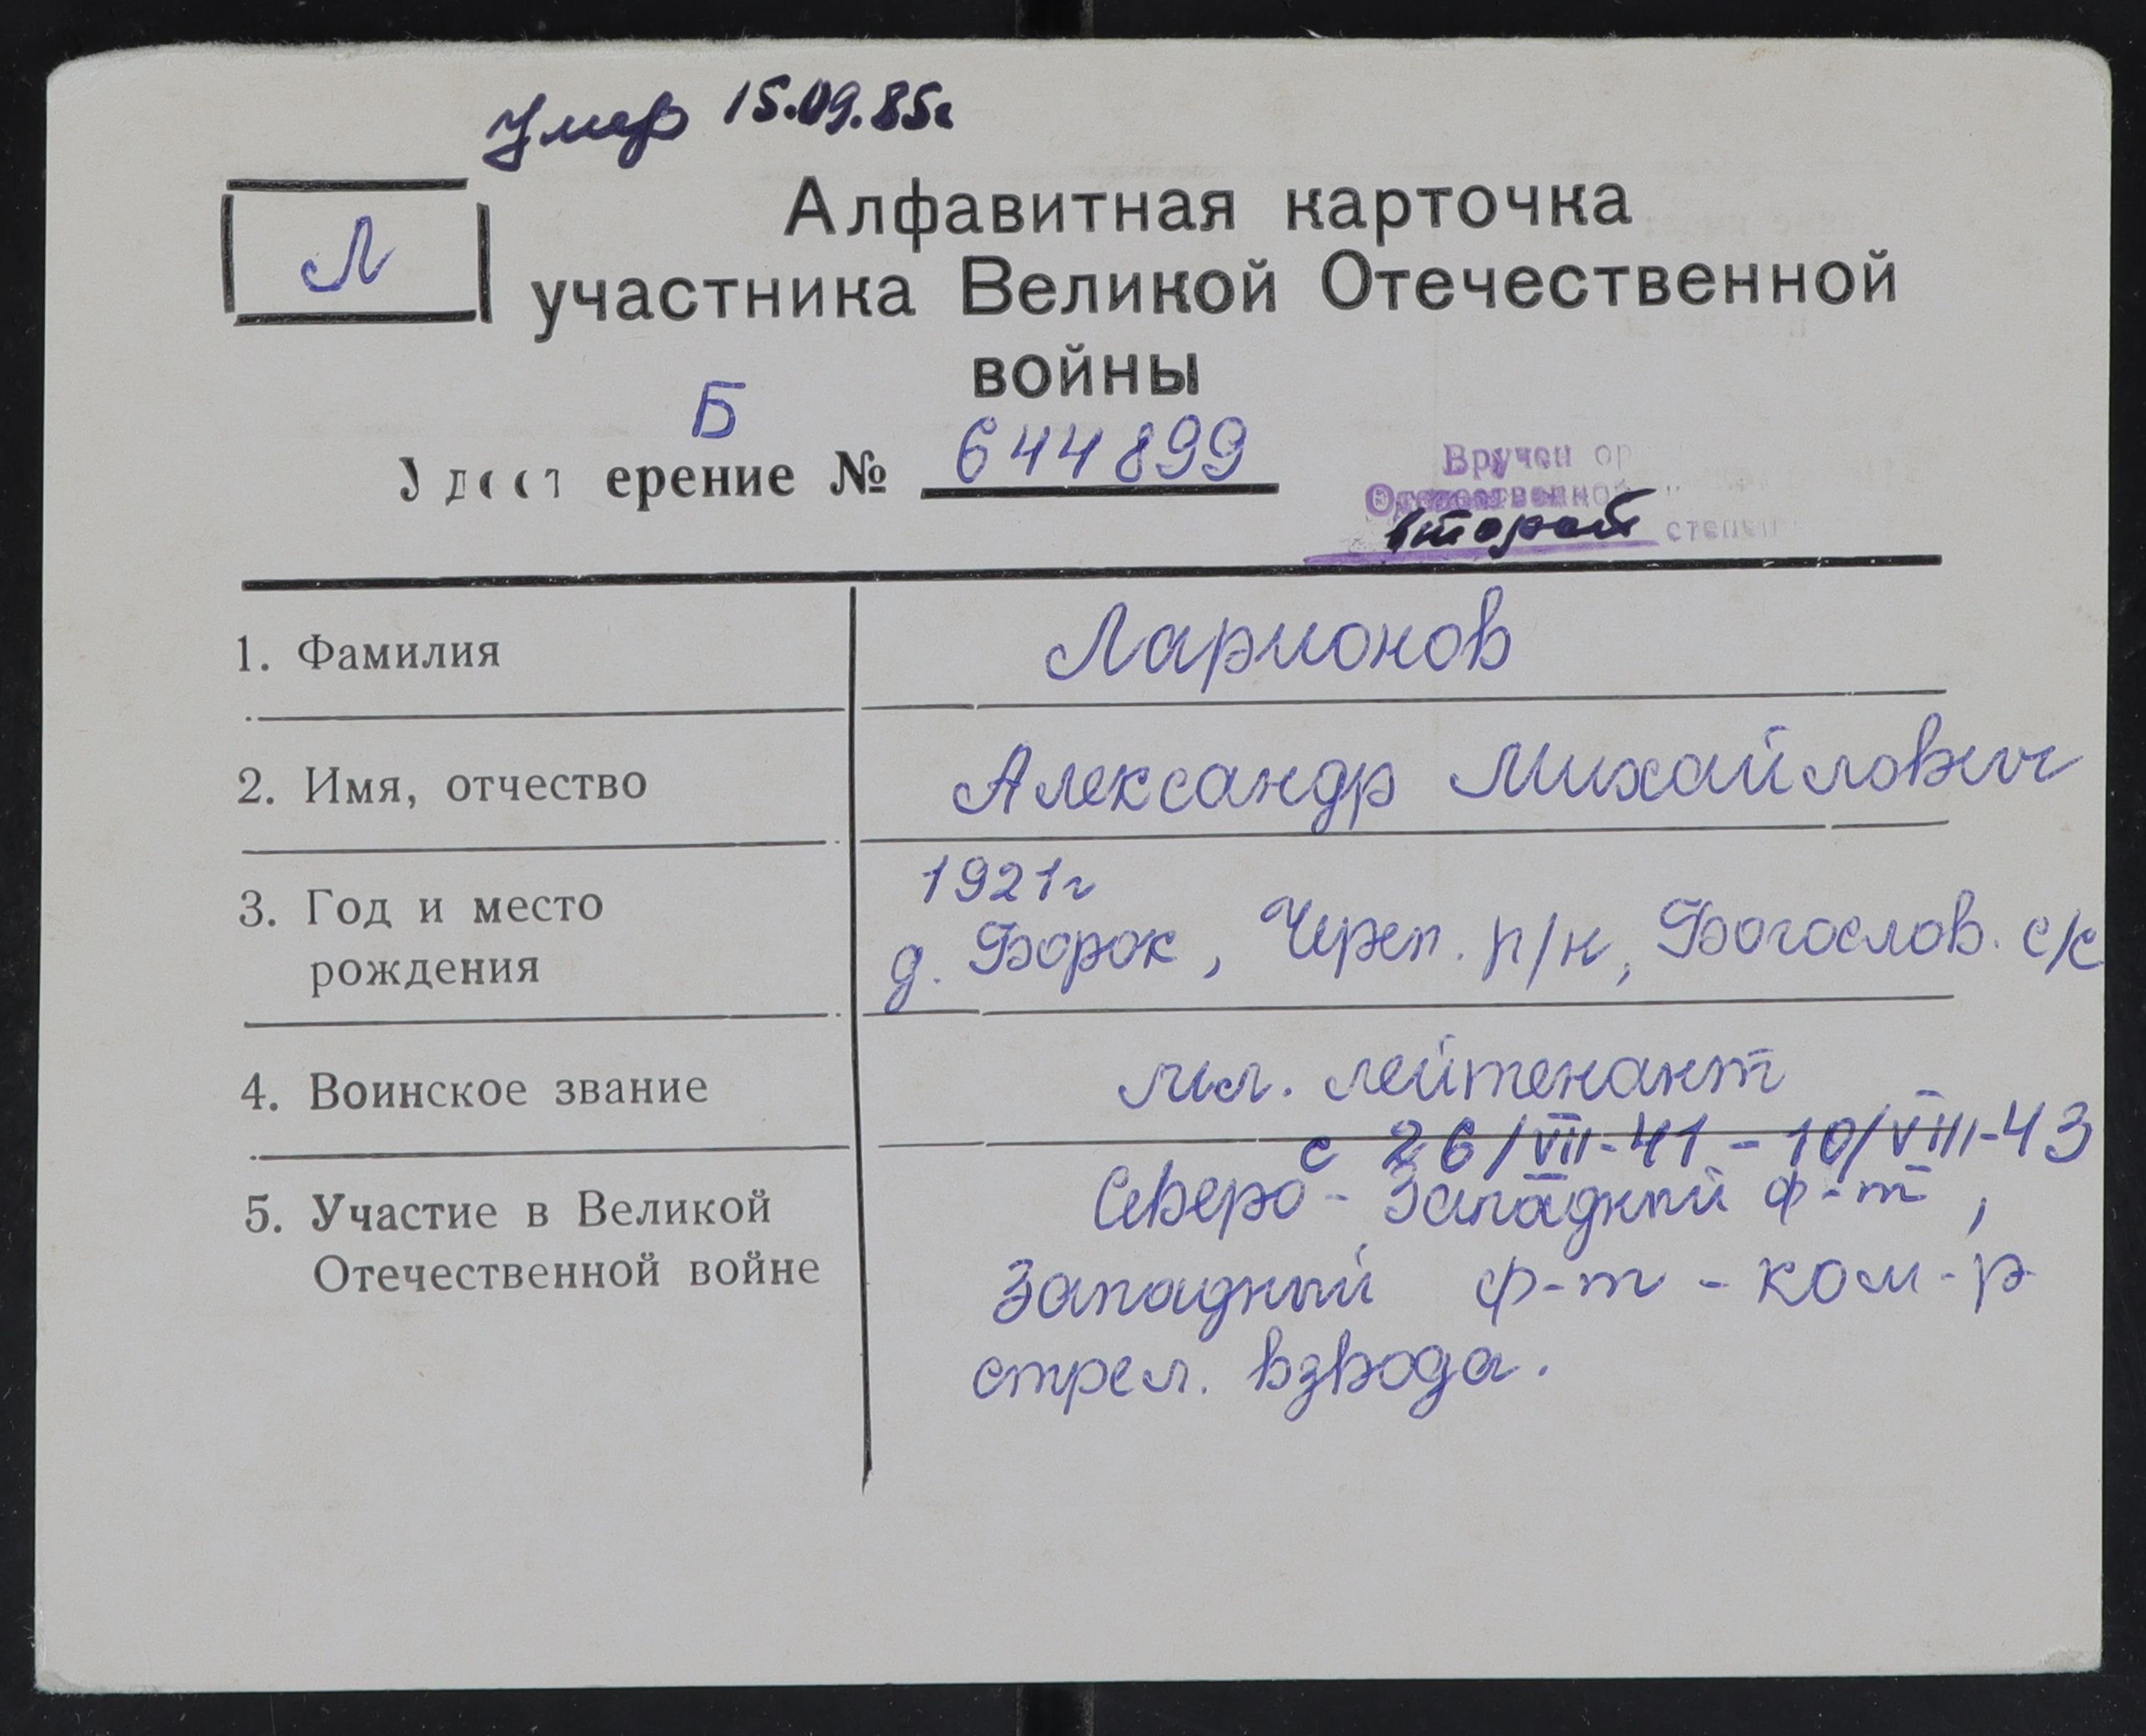 Умер 15.09.85г
Л
Алфавитная карточка
участника Великой Отечественной
войны
Б
ерение № 644899
Вручен ор
Отечественной
второй степени
1. Фамилия
Ларионов
2. Имя, отчество
Александр Михайлович
3. Год и место
рождения
1921г
д. Борок, Череп. р/н, Богослов. с/с
4. Воинское звание
мл. лейтенант
5. Участие в Великой
Отечественной войне
с 26/VII-41 - 10/VIII-43
Северо-Западный ф-т,
Западный ф-т - ком-р
стрел. взвода.